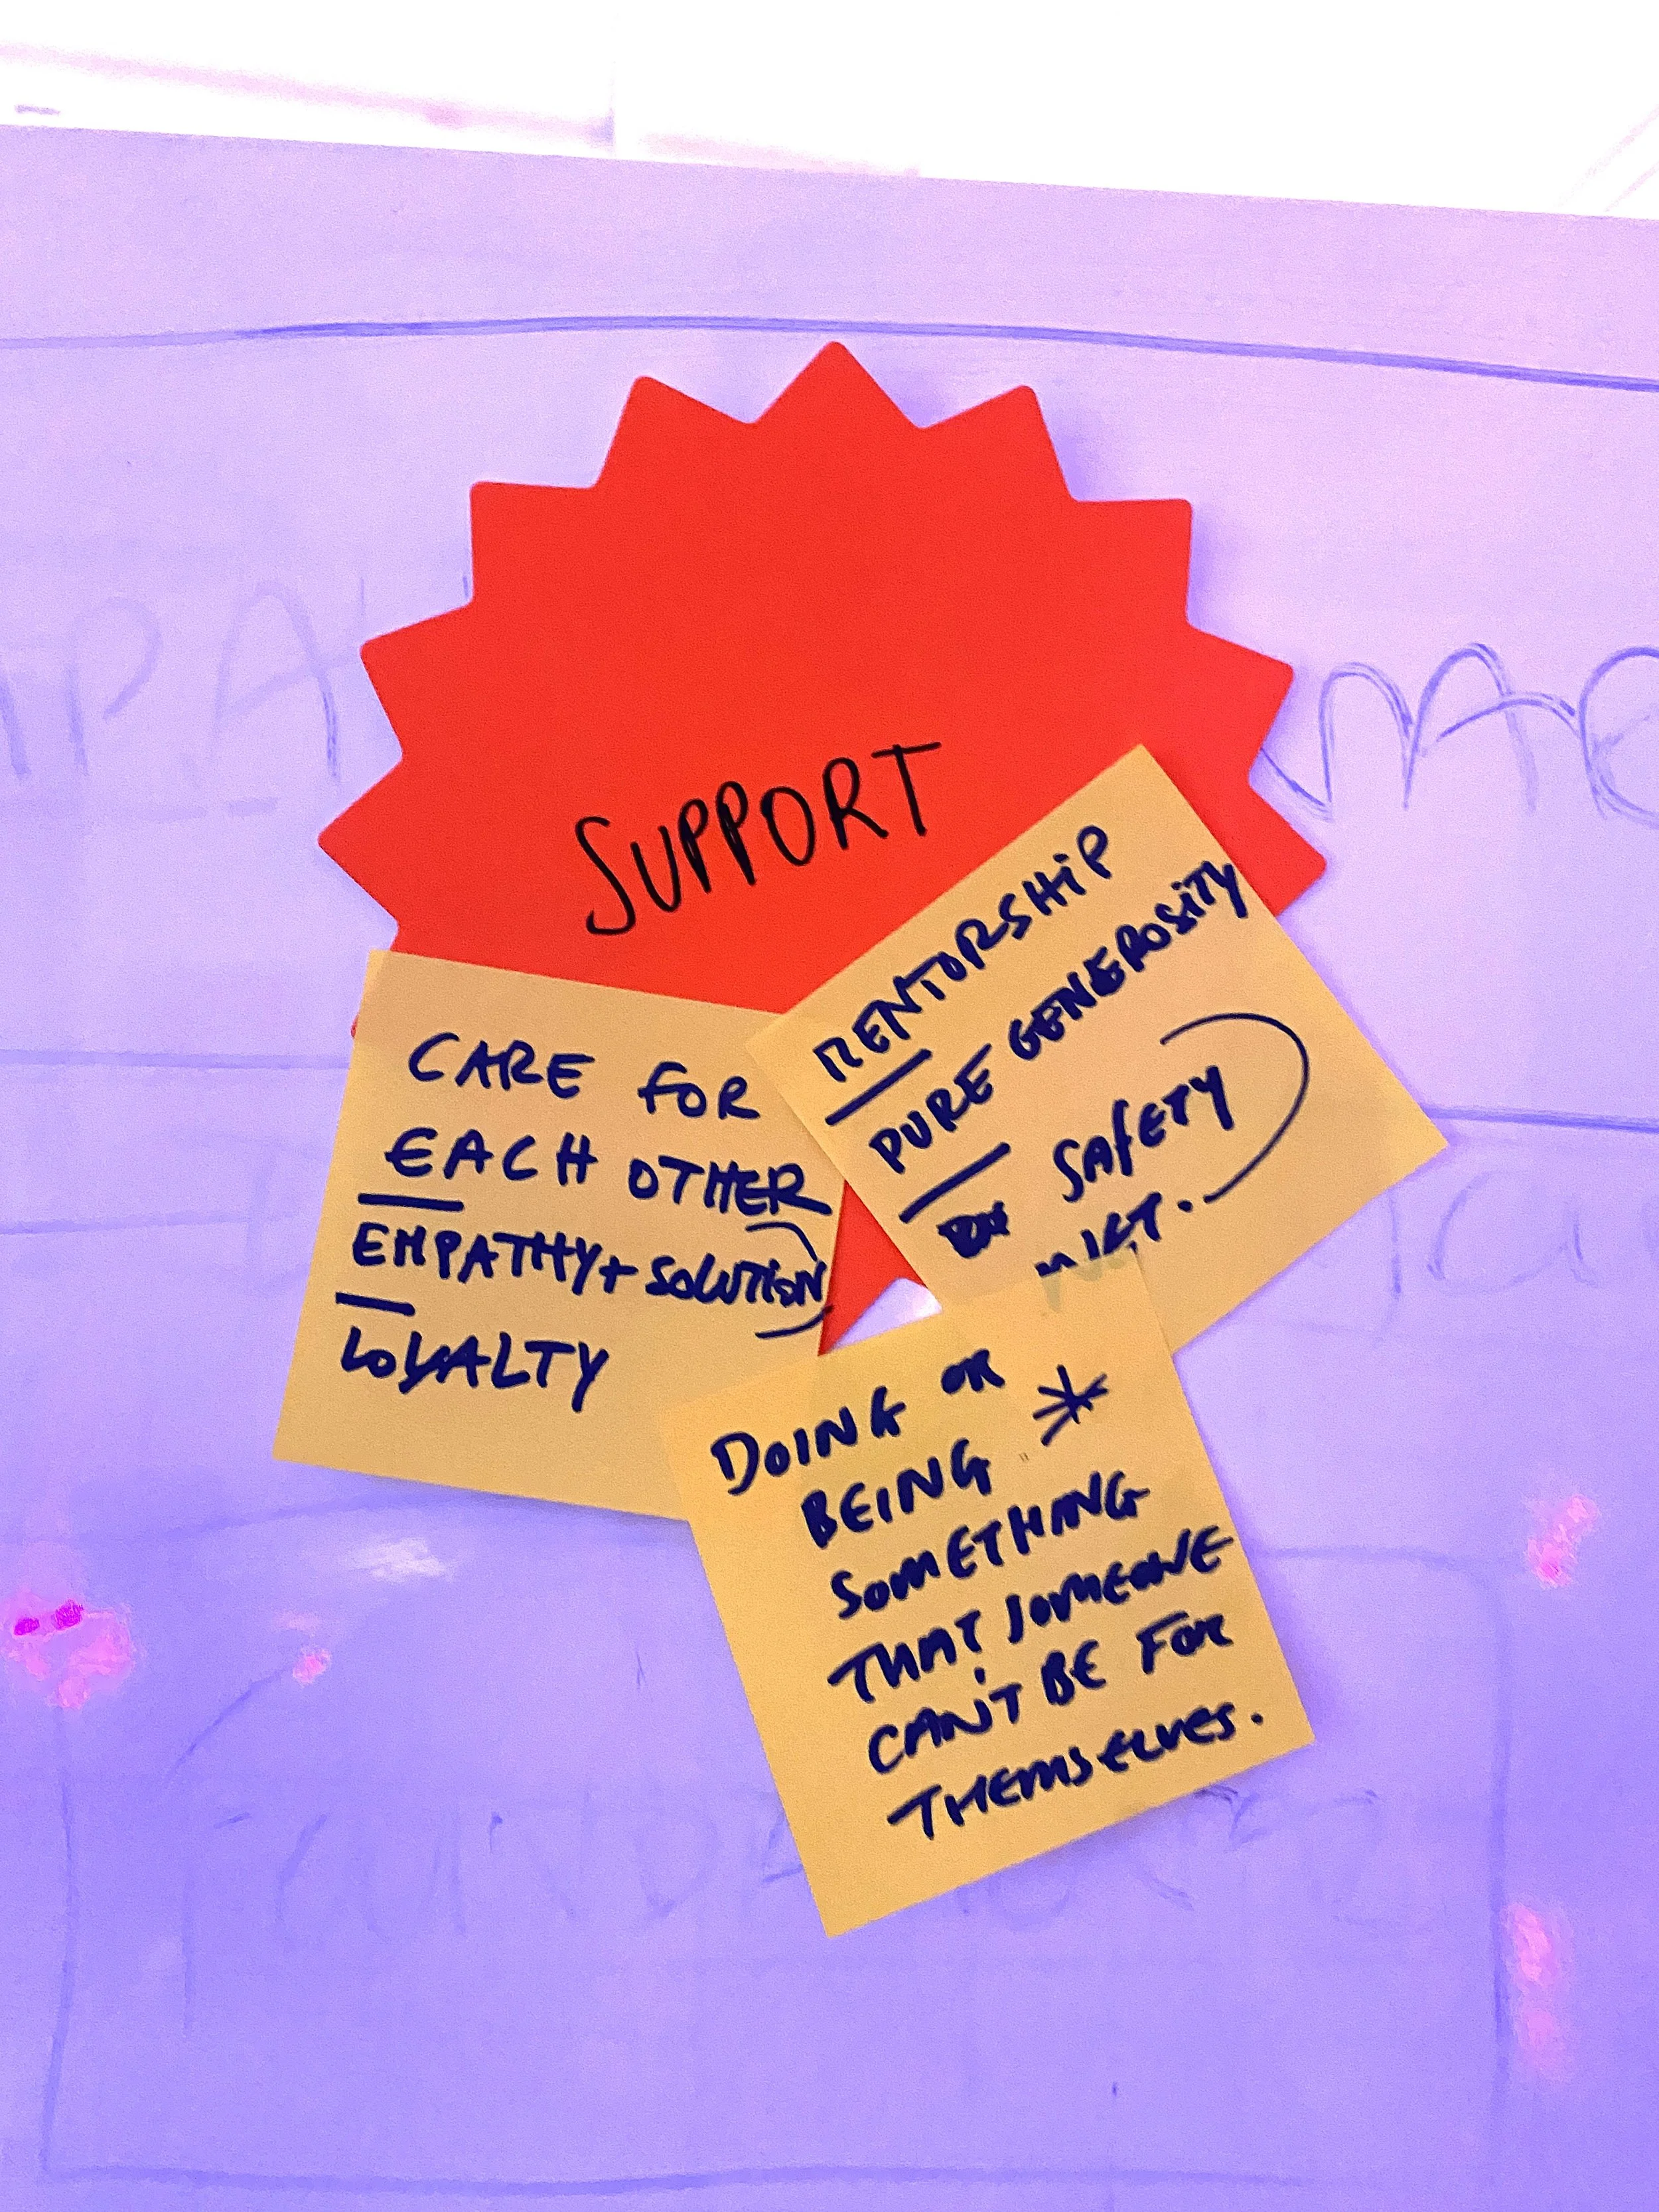 SUPPORT
CARE FOR
EACH OTHER
EMPATHY + SOLUTION
LOYALTY
MENTORSHIP
PURE GENEROSITY
SAFETY
DOING OR
BEING *
SOMETHING
THAT SOMEONE
CAN'T BE FOR
THEMSELVES.